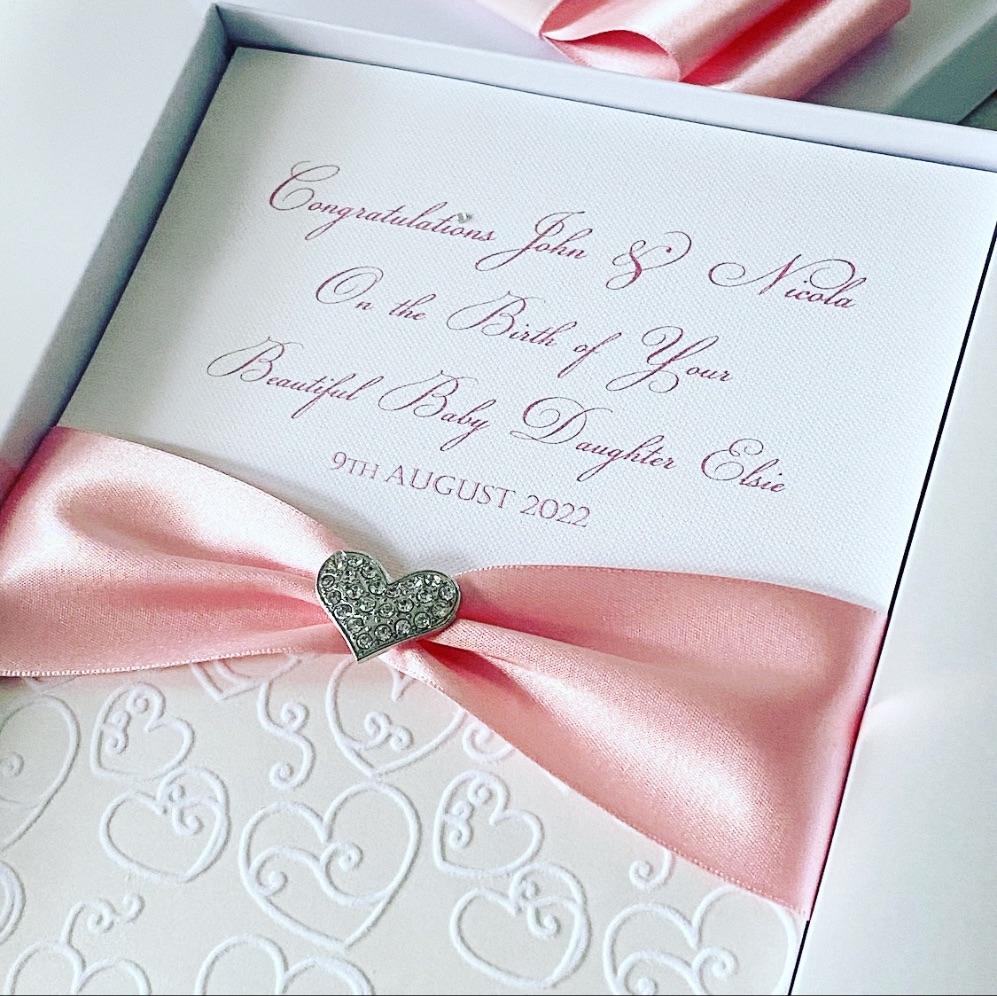 Congratulations John & Nicola
On the Birth of Your
Beautiful Baby Daughter Elsie
9TH AUGUST 2022